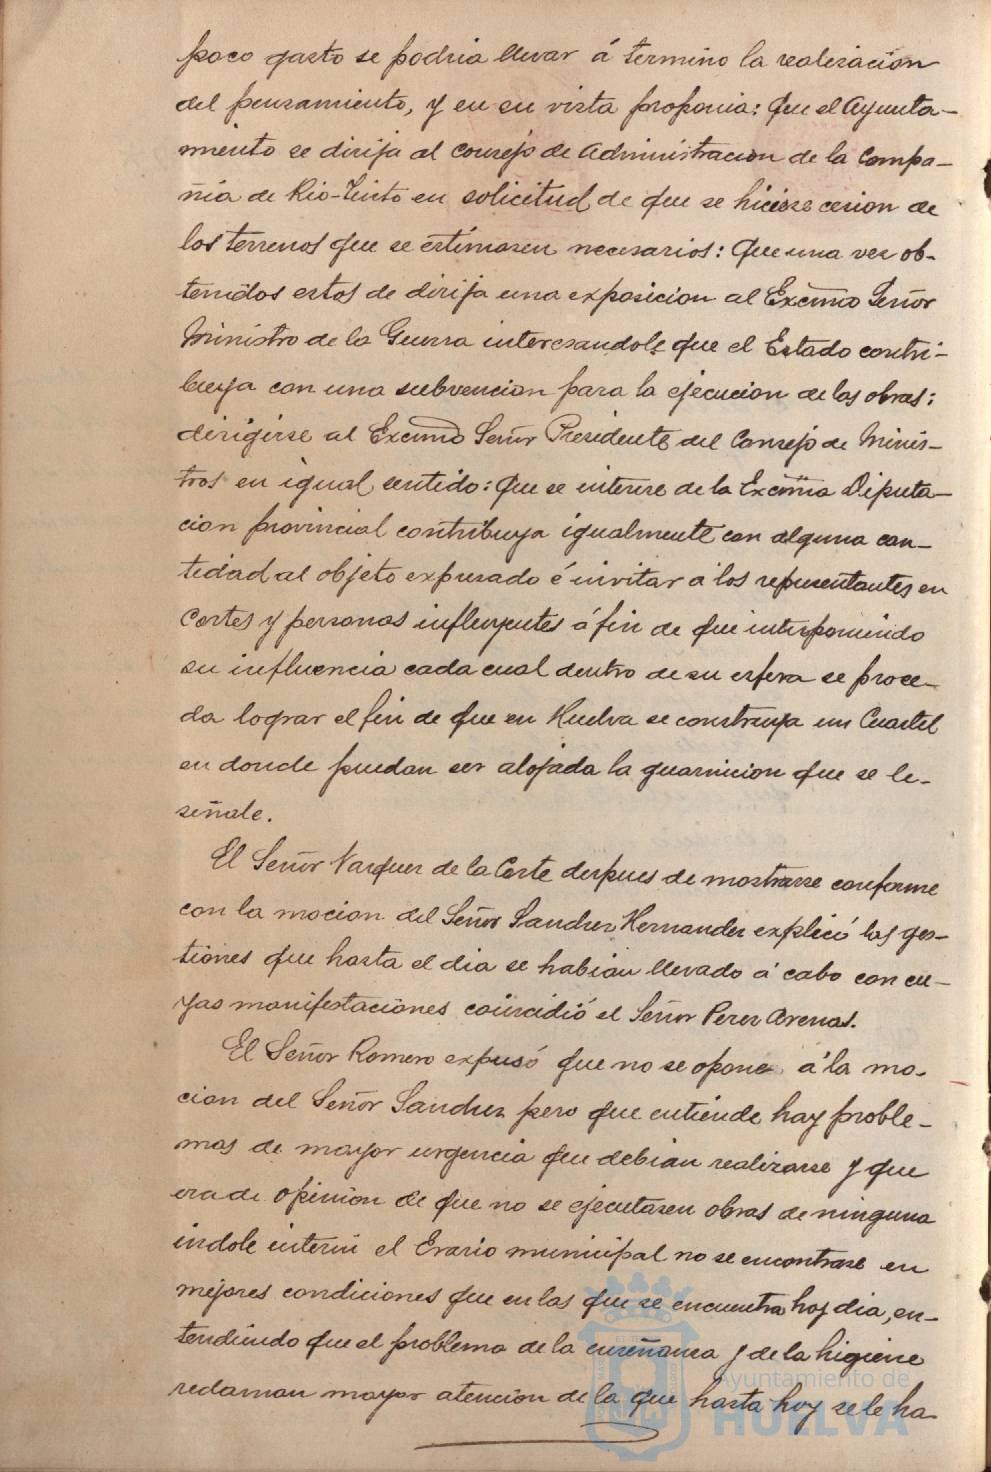 poco gasto se podria llevar á termino la realizacion
del pensamiento, y en su vista proponia: que el Ayunta-
miento se dirija al consejo de Administracion de la Compa-
ñia de Rio-Tinto en solicitud de que se hiciese cesion de
los terrenos que se estimasen necesarios: Que una vez ob-
tenidos estos de dirija una exposicion al Excmo Señor
Ministro de la Guerra interesandole que el Estado contri-
buya con una subvencion para la ejecucion de las obras:
dirigirse al Excmo Señor Presidente del Consejo de Minis-
tros en igual sentido: Que se interese de la Excma Diputa-
cion provincial contribuya igualmente con alguna can-
tidad al objeto expresado é invitar á los representantes en
Cortes y personas influyentes á fin de que interponiendo
su influencia cada cual dentro de su esfera se proce-
da lograr el fin de que en Huelva se construya un Cuartel
en donde puedan ser alojada la guarnicion que se le-
señale.
El Señor Vazquez de la Corte despues de mostrarse conforme
con la mocion del Señor Sanchez Hernandez explicó las ges-
tiones que hasta el dia se habian llevado á cabo con cu-
yas manifestaciones coincidió el Señor Perez Arenas.
El Señor Romero expusó que no se opone á la mo-
cion del Señor Sanchez pero que entiende hay proble-
mas de mayor urgencia que debian realizarse y que
era de opinion de que no se ejecutasen obras de ninguna
indole interin el Erario municipal no se encontrase en
mejores condiciones que en las que se encuentra hoy dia, en-
tendiendo que el problema de la enseñanza y de la higiene
reclaman mayor atencion de la que hasta hoy se le ha
Ayuntamiento de
HUELVA